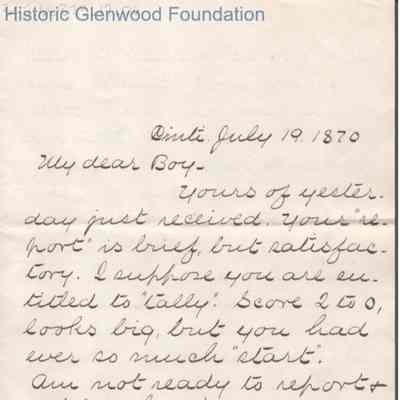 Historic Glenwood Foundation
Cinti. July 19. 1870
My dear Boy-
Yours of yester-
day just received. Your "re-
port" is brief, but satisfac-
tory. I suppose you are en-
titled to "tally". Score 2 to 0,
looks big, but you had
ever so much "start".
Am not ready to report &